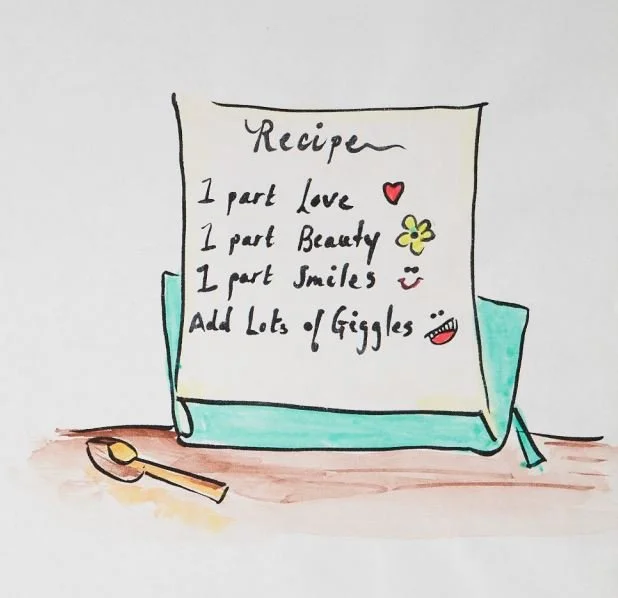 Recipe
1 part Love
1 part Beauty
1 part Smiles
Add Lots of Giggles